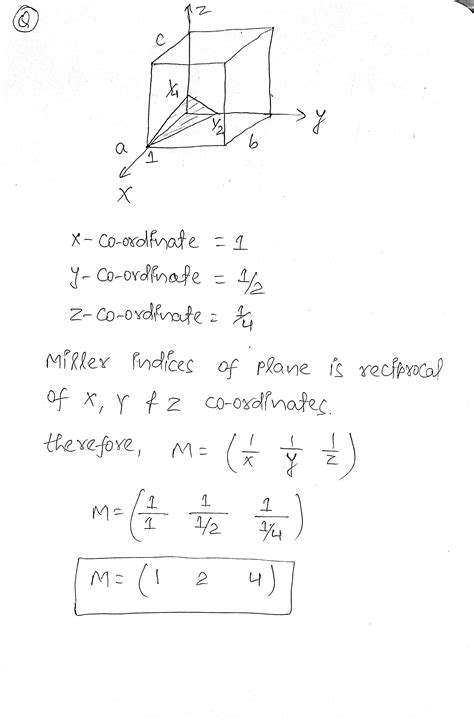 Q
z
c
1/4
1/2
y
a
1
b
x
x - co-ordinate = 1
y - co-ordinate = 1/2
z - co-ordinate = 1/4
Miller indices of plane is reciprocal
of x, y & z co-ordinates.
therefore, M = (1/x 1/y 1/z)
M = (1/1 1/1/2 1/1/4)
M = (1 2 4)